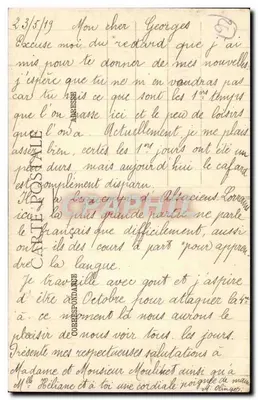 23/5/19 Mon cher Georges
Excuse moi du retard que j'ai
mis pour te donner de mes nouvelles
j'espère que tu ne m'en voudras pas
car tu sais ce que sont les 1ers temps
que l'on passe ici et le peu de loisirs
que l'on a. Actuellement je me plais
assez bien, certes les 1ers jours ont été un
peu durs mais aujourd'hui le cafard
est complèment disparu.
Alsaciens Lorrains
ici la plus grande partie ne parle
le français que difficilement, aussi
ont ils des cours à part pour appren
dre la langue.
Je travaille avec gout et j'aspire
d'être à Octobre pour attaquer la
à ce moment là nous aurons le
plaisir de nous voir tous les jours.
Présente mes respectueuses salutations à
Madame et Monsieur ainsi qu'à
Mlle Héliane et à toi une cordiale poignée de main
CARTE POSTALE
ADRESSE
CORRESPONDANCE